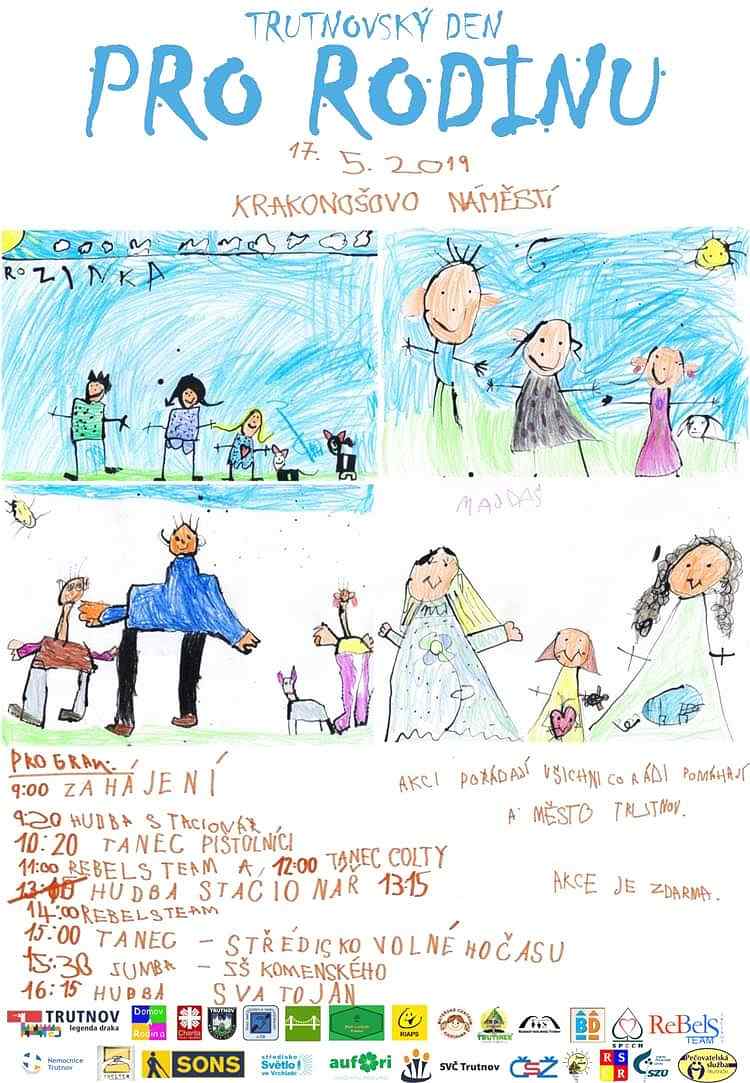 TRUTNOVSKÝ DEN
PRO RODINU
17. 5. 2019
KRAKONOŠOVO NÁMĚSTÍ
ROZINKA
MAJDAŠ
PROGRAM:
9:00 ZAHÁJENÍ
9:20 HUDBA STACIONÁŘ
10:20 TANEC PISTOLNÍCI
11:00 REBELSTEAM A, 12:00 TANEC COLTY
HUDBA STACIONÁŘ 13:15
14:00 REBELSTEAM
15:00 TANEC – STŘEDISKO VOLNÉHO ČASU
15:30 JUMBA – ZŠ KOMENSKÉHO
16:15 HUDBA SVATOJAN
AKCI POŘÁDAJÍ VŠICHNI CO RÁDI POMÁHAJÍ
A MĚSTO TRUTNOV.
AKCE JE ZDARMA.
TRUTNOV
legenda draka
Domov
Rodina
Charita
TRUTNOV
RIAPS
SPECH
ReBeLs
TEAM
Nemocnice
Trutnov
SONS
středisko
Světlo
ve Vrchlabí
aufori
SVČ Trutnov
ČSŽ
RS
SR
SZÚ
Pečovatelská
služba